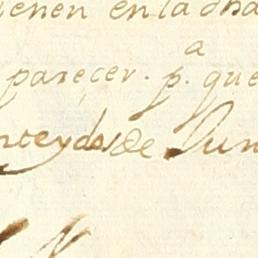 ienen en la dha
a
parecer. p. que
nteydos de Jun